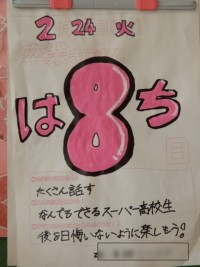 2 24 火
は8ち
日
たくさん話す
なんでもできるスーパー高校生
後8日悔いないように楽しもう!